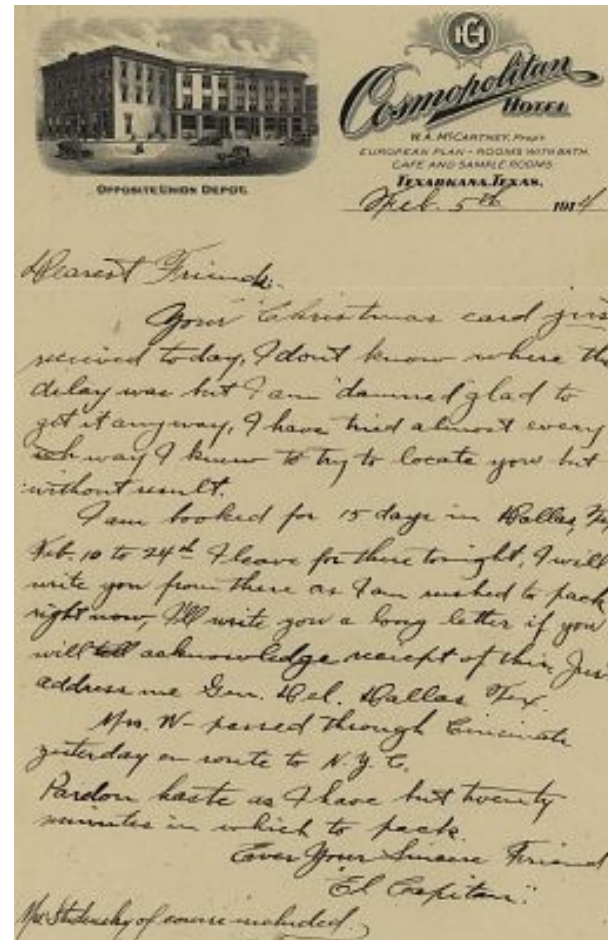 HC
Cosmopolitan
HOTEL
W. A. McCARTNEY, Prop'r.
EUROPEAN PLAN - ROOMS WITH BATH.
CAFE AND SAMPLE ROOMS
OPPOSITE UNION DEPOT.
TEXARKANA, TEXAS,
Feb. 5th 1914
Dearest Friend:
Your Christmas card jus
received today, I dont know where th
delay was but I am "damned" glad to
get it anyway, I have tried almost every
way I knew to try to locate you but
without result.
I am booked for 15 days in Dallas, Tex
Feb. 10 to 24th I leave for there tonight, I will
write you from there as I am rushed to pack
right now, I'll write you a long letter if you
will acknowledge receipt of this, Jus
address me Gen. Del. Dallas Tex.
Mrs. W- passed through Cincinati
yesterday en route to N.Y.C.
Pardon haste as I have but twenty
minutes in which to pack.
Ever Your Sincere Friend
"El Capitan".
of course included.